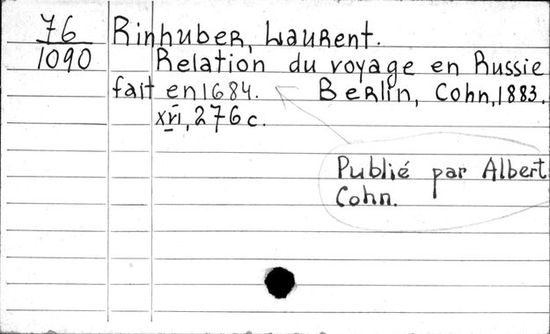 76
1090
Rinhuber, Laurent.
Relation du voyage en Russie
fait en 1684. Berlin, Cohn, 1883.
XVI, 276 c.
Publié par Albert
Cohn.